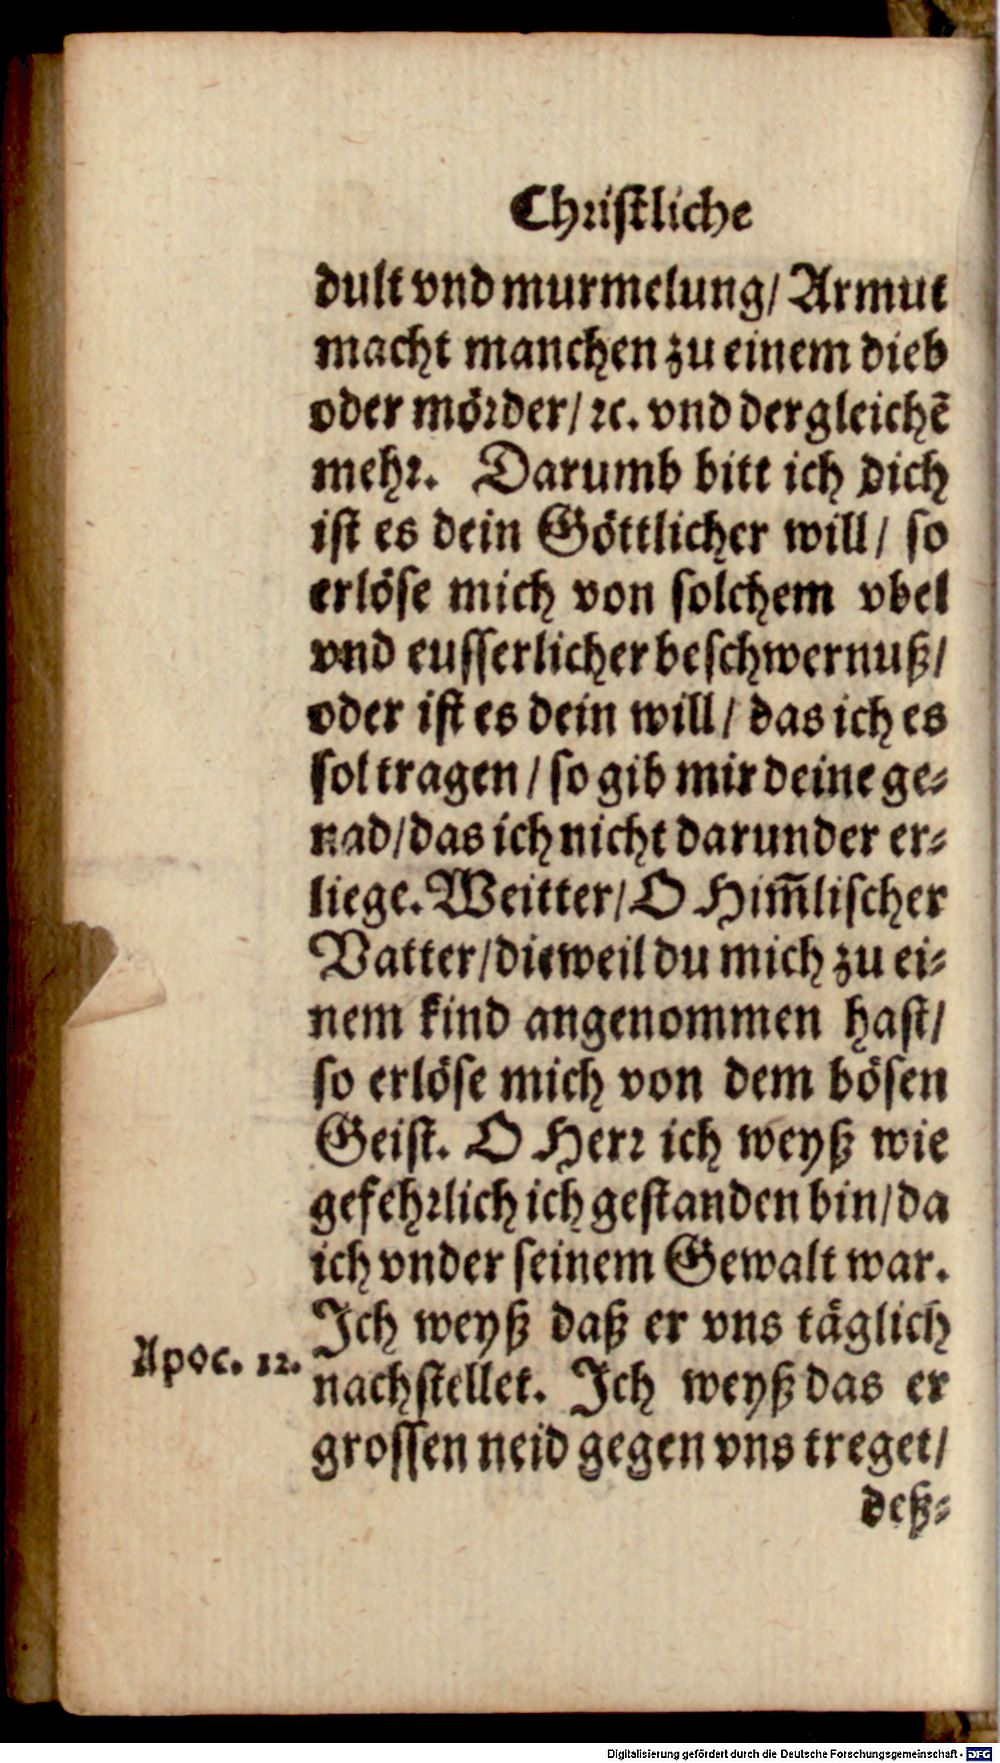 Christliche
dult vnd murmelung/ Armut
macht manchen zu einem dieb
oder mörder/ ꝛc. vnd dergleichẽ
mehr. Darumb bitt ich dich
ist es dein Göttlicher will/ so
erlöse mich von solchem vbel
vnd eusserlicher beschwernuß/
oder ist es dein will/ das ich es
sol tragen/ so gib mir deine ge-
nad/ das ich nicht darunder er-
liege. Weitter/ O Him̃lischer
Vatter/ dieweil du mich zu ei-
nem kind angenommen hast/
so erlöse mich von dem bösen
Geist. O Herr ich weyß wie
gefehrlich ich gestanden bin/ da
ich vnder seinem Gewalt war.
Ich weyß daß er vns täglich
Apoc. 12.
nachstellet. Ich weyß das er
grossen neid gegen vns treget/
deß-
Digitalisierung gefördert durch die Deutsche Forschungsgemeinschaft - DFG